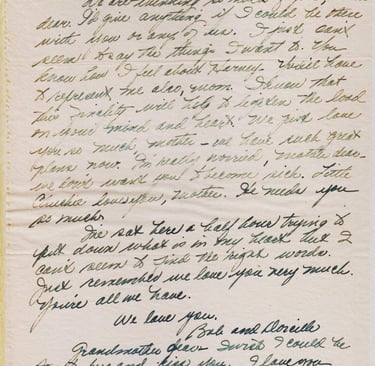 We are thinking so much of you,
dear. I'd give anything if I could be there
with you or any of us. I just can't
seem to say the things I want to. You
know how I feel about Harvey. You'll have
to represent me also, mom. I know that
this finality will help to lighten the load
on your mind and heart. We just love
you so much, mother - we have such great
plans now. I'm really worried, mother dear -
we don't want you to become sick. Little
loves you, mother. He needs you
so much.
I've sat here a half hour trying to
put down what is in my heart but I
can't seem to find the right words.
Just remember we love you very much.
You're all we have.
We love you.
Bob and
Grandmother dear - I wish I could be
and kiss you. I love you